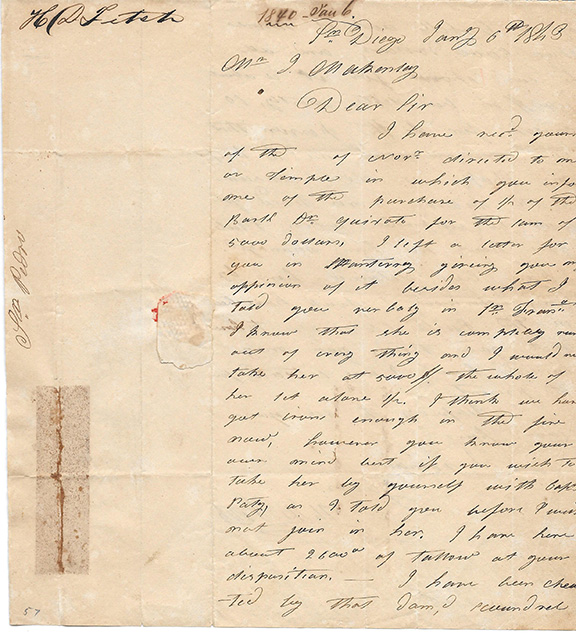 H D Fitch
1840 Jan 6
Sn Diego Jany 6th 1843
Mr J. Makenlay
Dear Sir
I have recd yours
of the of Novr directed to me
or Temple in which you info
me of the purchase of ½ of the
Bark Dn Quixote for the sum of
5000 dollars, I left a letter for
you in Monterrey giveing you m
oppinion of it besides what I
told you verbaly in Sn Frano
I know that she is compleatly run
out of every thing and I would no
take her at 5000 $ the whole of
her let alone ½. I think we have
got irons enough in the fire
now, however you know your
own mind best if you wish to
take her by yourself with Capt
Paty, as I told you before I wou
not join in her. I have here
about 2600 @ of tallow at your
disposition. — I have been chea
-ted by that dam,d scoundrel
Sn Pedro
57